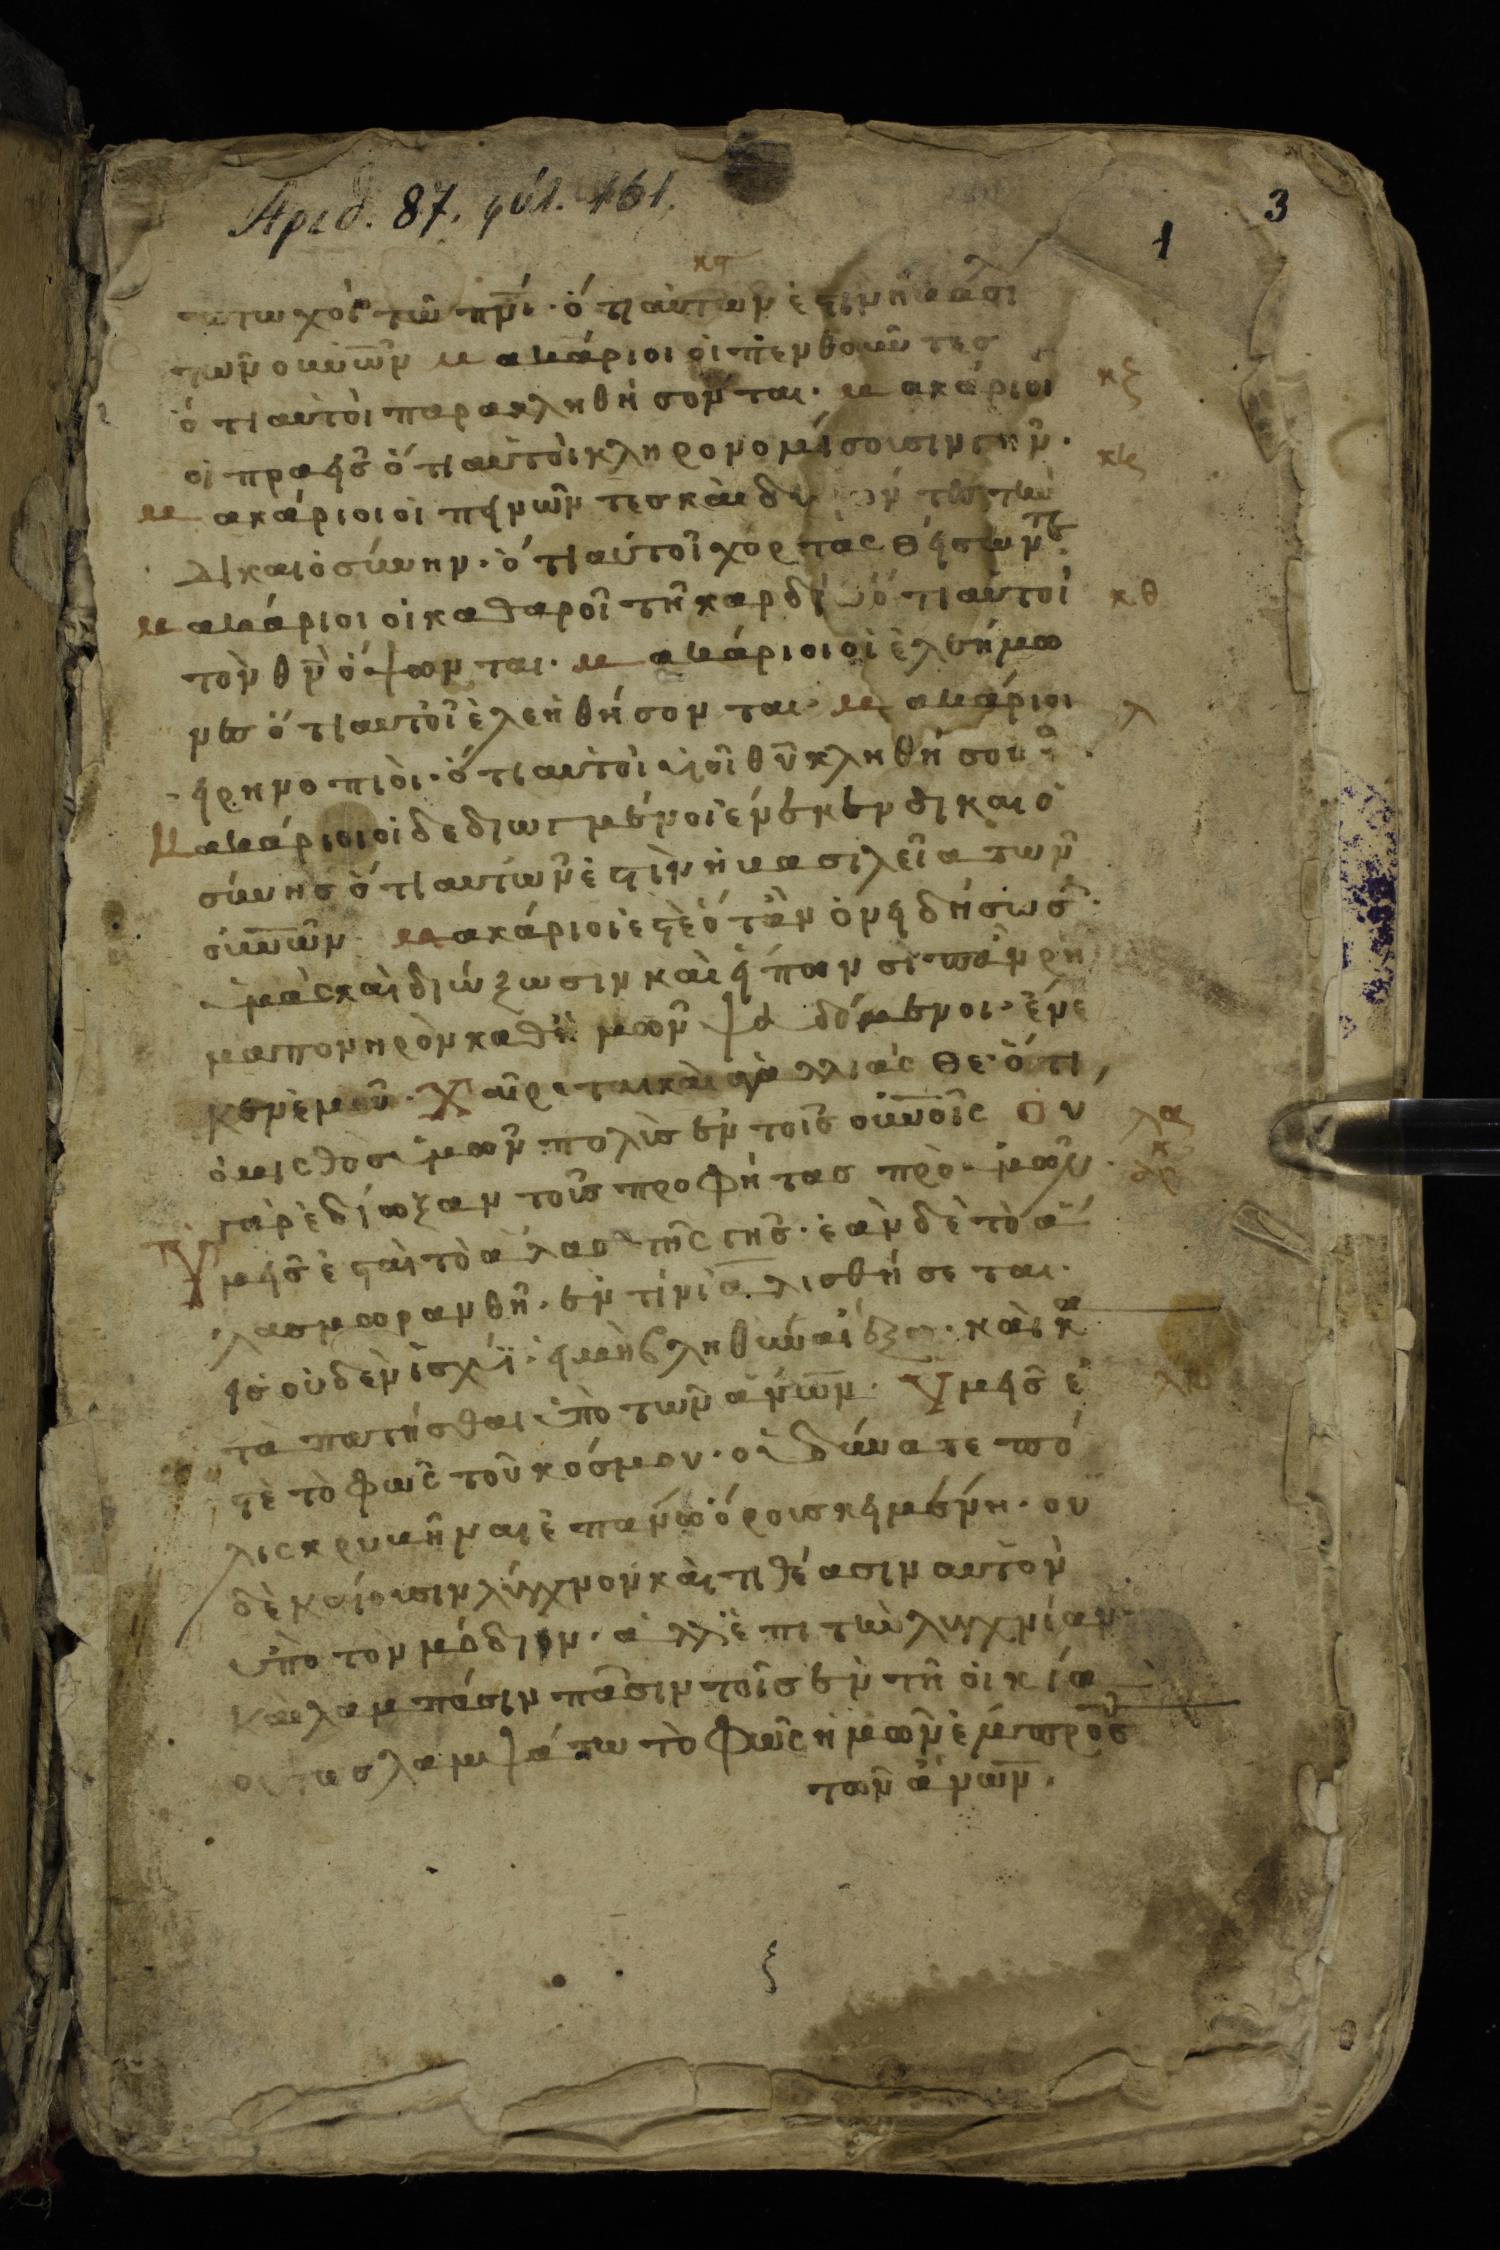 Αριθ. 87. φύλ. 161.
3
1
πτωχοὶ τῶ πνι· ὅτι αὐτων ἐστιν ἡ βασι
των οὐνῶν μακάριοι οἱ πενθοῦντες
κζ
ὅτι αὐτοὶ παρακληθήσονται· μακάριοι
οἱ πραεῖς ὅτι αὐτοὶ κληρονομήσουσιν γῆν·
κη
μακάριοι οἱ πεινῶντες καὶ
δικαιοσύνην· ὅτι αὐτοὶ χορτασθήσων
μακάριοι οἱ καθαροὶ τῆ καρδία ὅτι αὐτοὶ
κθ
τὸν θν ὄψωνται· μακάριοι οἱ ἐλεήμω
νες ὅτι αὐτοὶ ἐλεηθήσονται· μακάριοι
λ
ειρηνοπιοὶ· ὅτι αὐτοὶ υἱοὶ θυ κληθήσου
μακάριοι οἱ δεδιωγμένοι ἕνεκεν δικαιο
σύνης ὅτι αὐτῶν ἐστὶν ἡ βασιλεία των
οὐνῶν μακάριοι ἐστὲ ὅταν ὀνειδήσωσ
ὑμᾶς καὶ διώξωσιν καὶ εἴπων
μα πονηρὸν καθ ὑμων ψευδόμενοι· ἕνε
κεν ἐμοῦ· Χαῖρεται καὶ ἀγαλλιᾶσθε· ὅτι
ὁ μισθὸς ὑμων πολὺς ἐν τοῖς οὐνοῖς Ου
λα
γὰρ ἐδίωξαν τοὺς προφήτας πρὸ ὑμων·
Ὑμεῖς ἐσται τὸ ἅλας τῆς γῆς· ἐὰν δὲ τὸ ἅ
λας μωρανθῆ· ἐν τίνι ἁλισθήσεται·
εἰς οὐδὲν ἰσχύϊ· εἰ μὴ βληθῆναι ἔξω· καὶ κα
τὰ πατήσθαι ὑπὸ των ἀνων· Ὑμεῖς ἐ
στὲ τὸ φῶς τοῦ κόσμου· οὐ δύνατε πό
λις κρυβῆναι ἐπάνω ὄρους κειμένη· ου
δὲ καίουσιν λύχνον καὶ τιθέασιν αυτὸν
ὑπὸ τον μόδιον· ἀλλ ἐπι την λυχνίαν·
Και λαμπάσιν πᾶσιν τοῖς ἐν τῆ οἰκία
ουτως λαμψάτω τὸ φῶς ἡμων ἔμπροσ
των ἀνων·
ξ